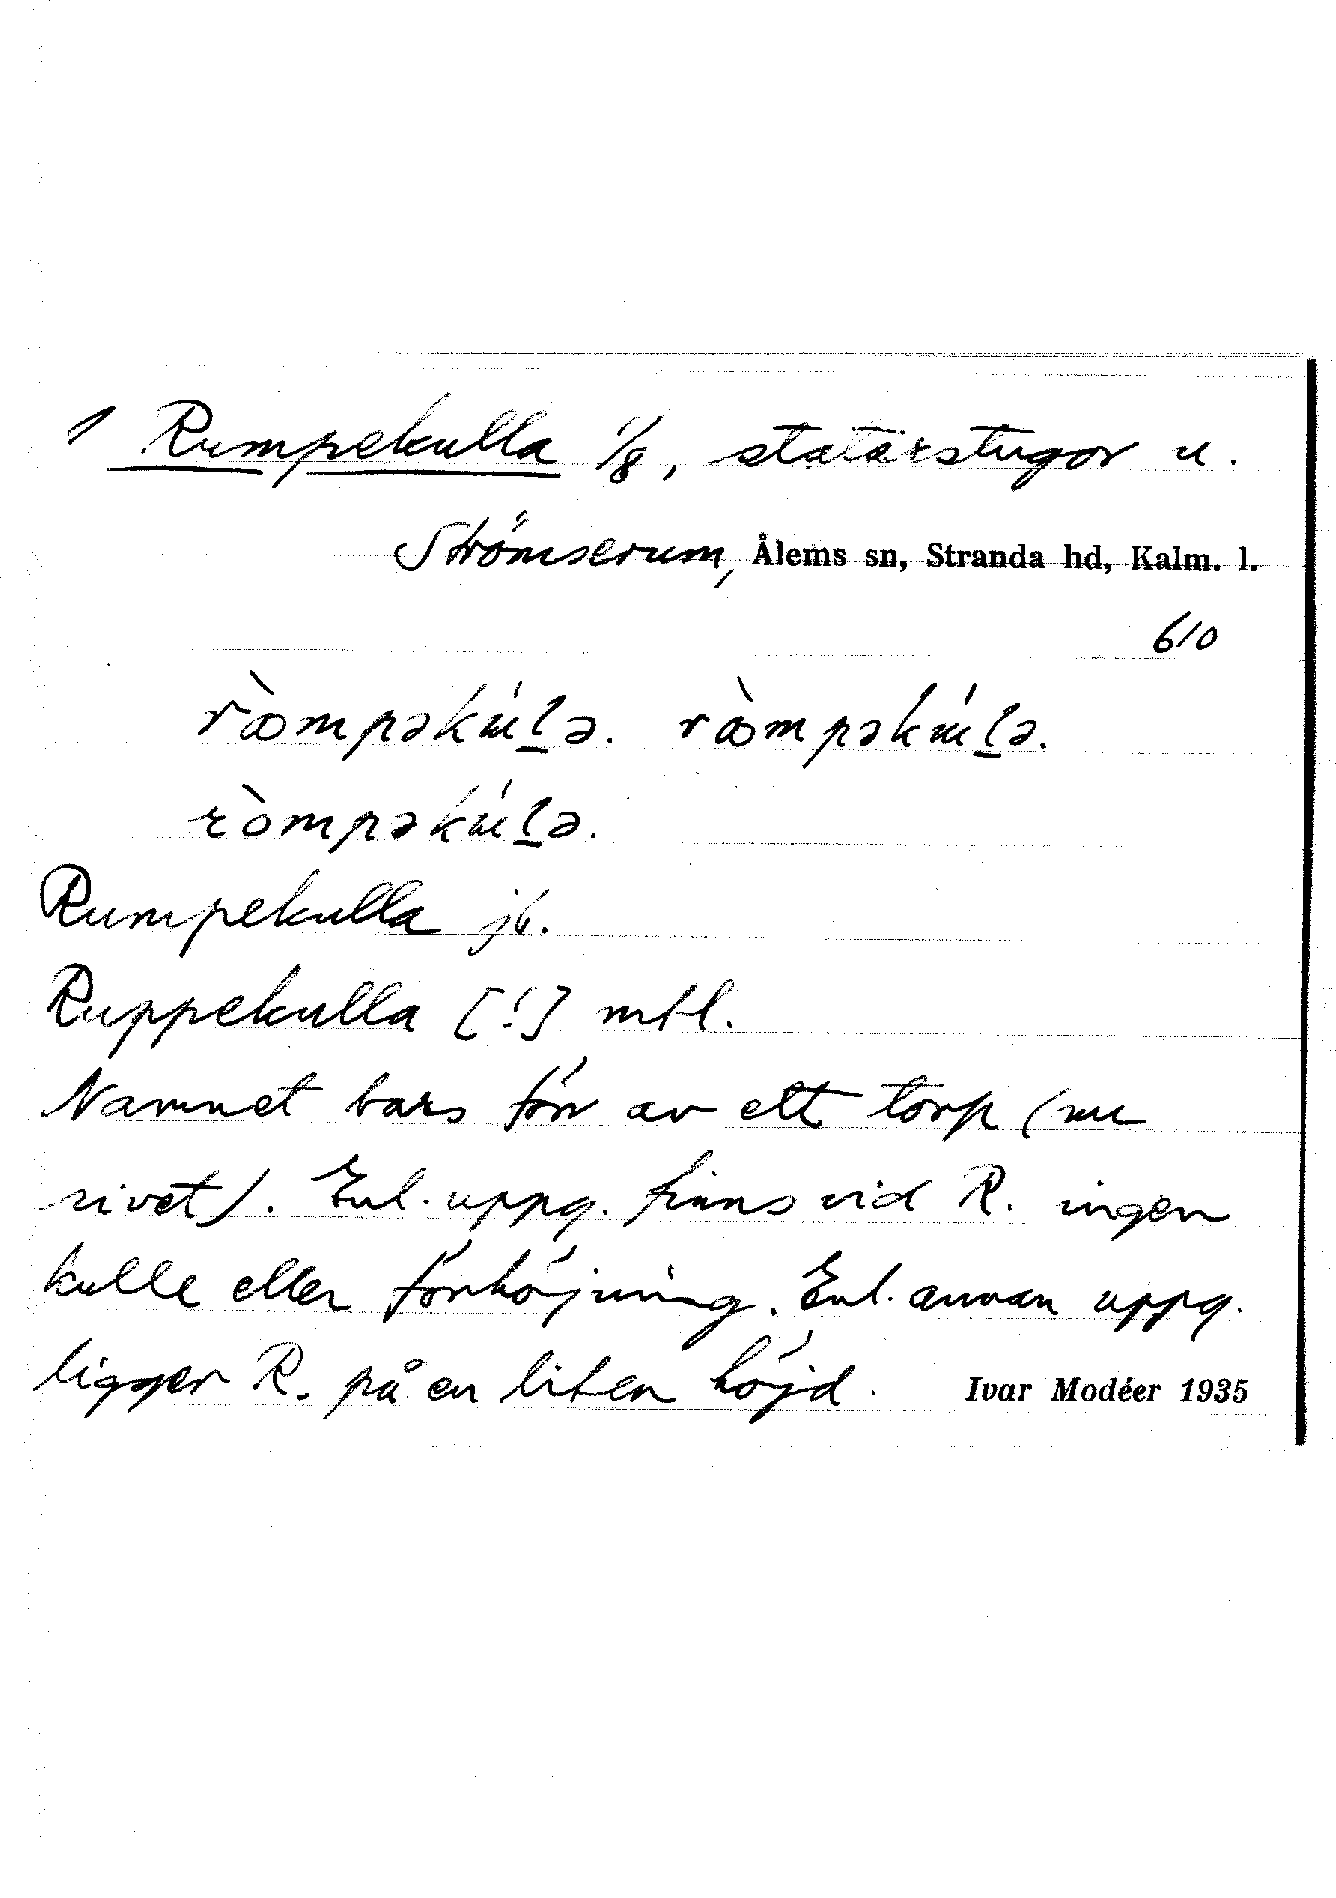 1 Rumpekulla 1/8, statarstugor u.
Strömserum, Ålems sn, Stranda hd, Kalm. l.
610
rœ̀mpəkúlə. rœ̀mpəkúlə.
ròmpəkúlə.
Rumpekulla jb.
Ruppekulla [!] mtl.
Namnet bars förr av ett torp (nu
rivet). Enl. uppg. finns vid R. ingen
kulle eller förhöjning. Enl. annan uppg.
ligger R. på en liten höjd.
Ivar Modéer 1935